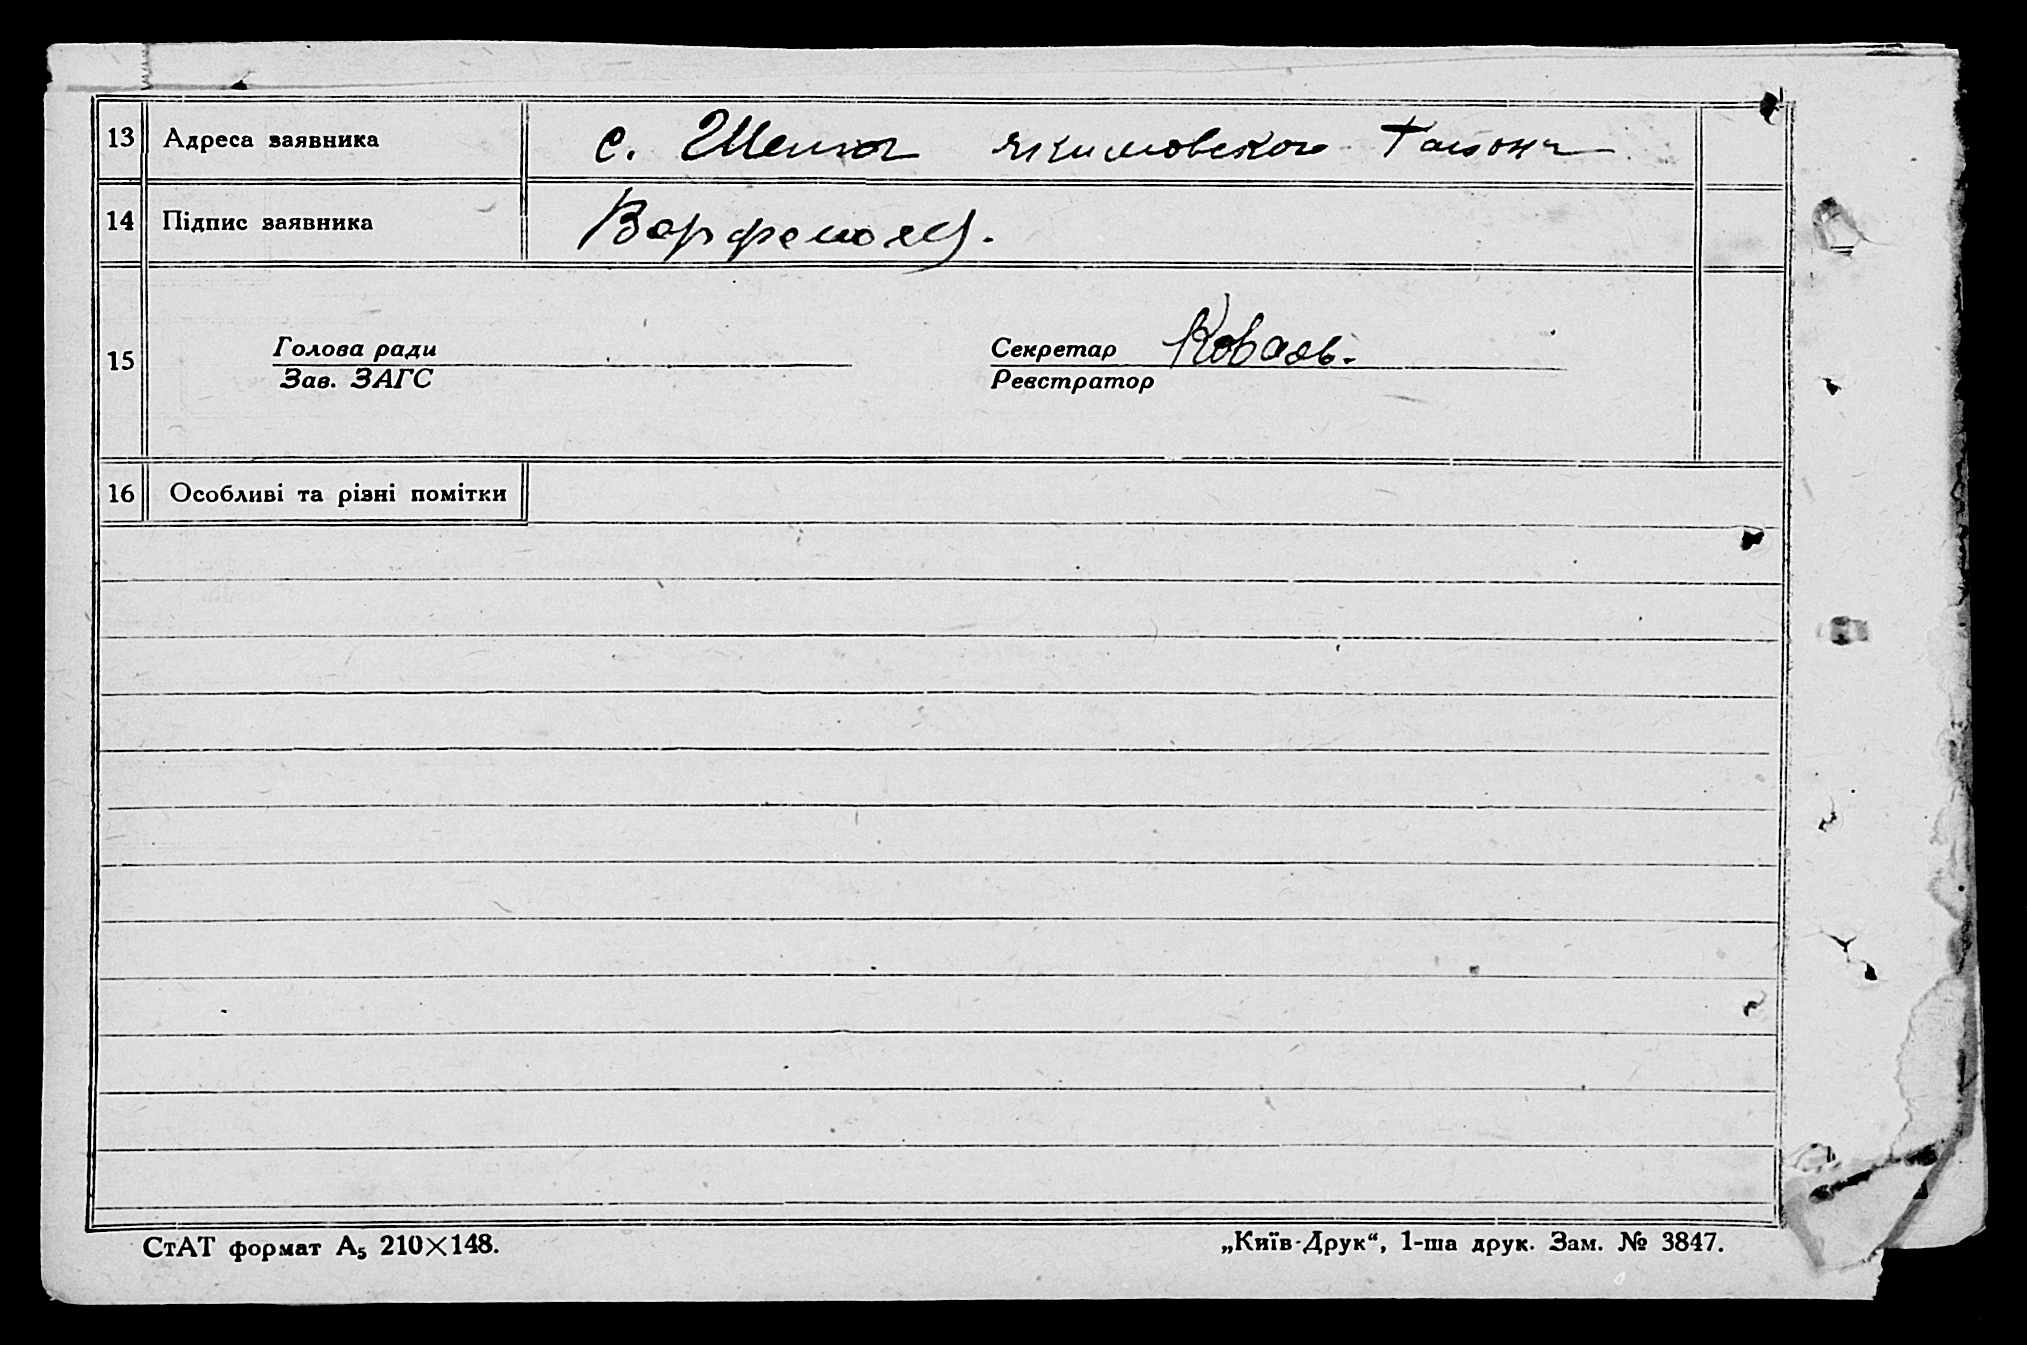 13 Адреса заявника с. Шелюги якимовского района
14 Підпис заявника
15 Голова ради Секретар Коваль.
Зав. ЗАГС Реєстратор
16 Особливі та різні помітки
СтАТ формат А₅ 210×148. „Київ-Друк“, 1-ша друк. Зам. № 3847.